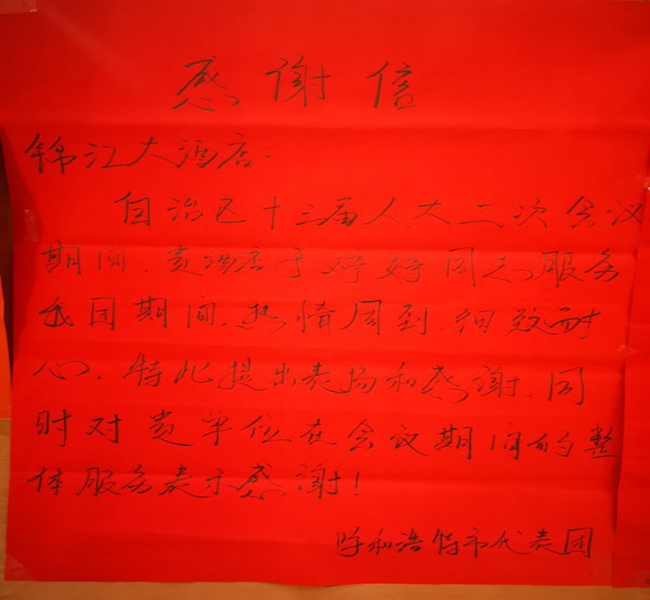 感谢信
锦江大酒店：
自治区十三届人大二次会议
期间，贵酒店于婷婷同志服务
我团期间，热情周到，细致耐
心，特此提出表扬和感谢，同
时对贵单位在会议期间的整
体服务表示感谢！
呼和浩特市代表团